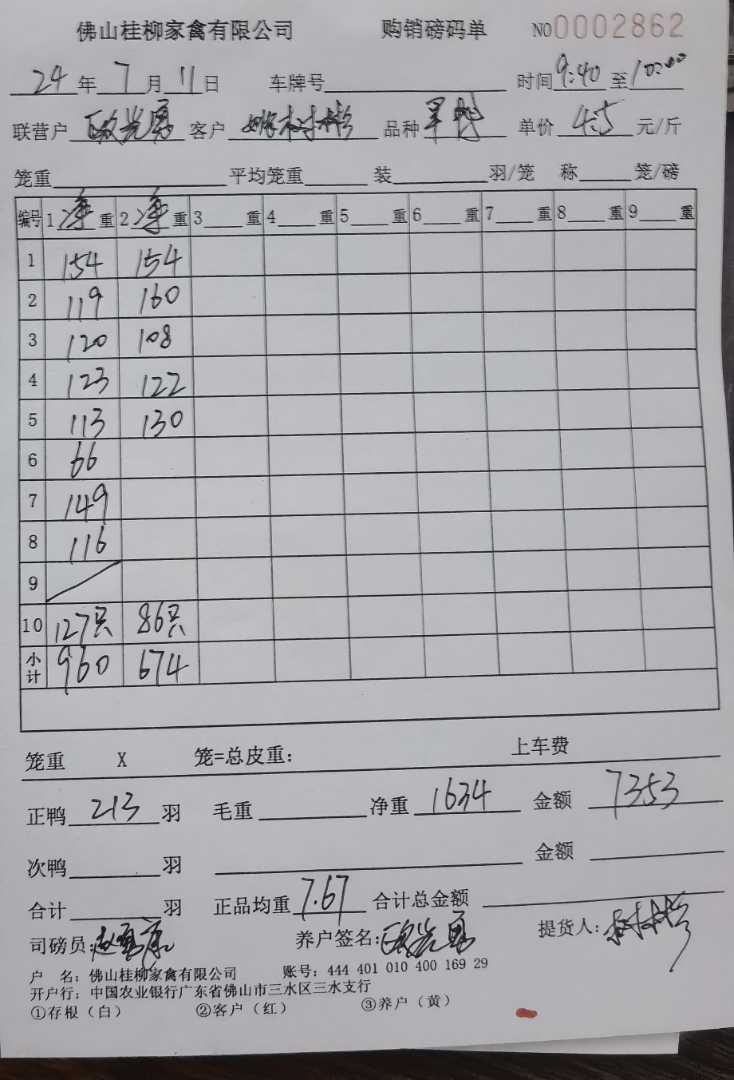 佛山桂柳家禽有限公司 购销磅码单 NO0002862
24年7月11日 车牌号 时间9:40至10:00
联营户 客户 品种 单价4.5元/斤
笼重 平均笼重 装 羽/笼 称 笼/磅
编号 1净重 2净重 3 重 4 重 5 重 6 重 7 重 8 重 9 重
1 154 154
2 119 160
3 120 108
4 123 122
5 113 130
6 66
7 149
8 116
9
10 127只 86只
小计 960 674
笼重 X 笼=总皮重: 上车费
正鸭213羽 毛重 净重1634 金额7353
次鸭 羽 金额
合计 羽 正品均重7.67 合计总金额
司磅员: 养户签名: 提货人:
户 名: 佛山桂柳家禽有限公司 账号: 444 401 010 400 169 29
开户行: 中国农业银行广东省佛山市三水区三水支行
①存根(白) ②客户(红) ③养户(黄)